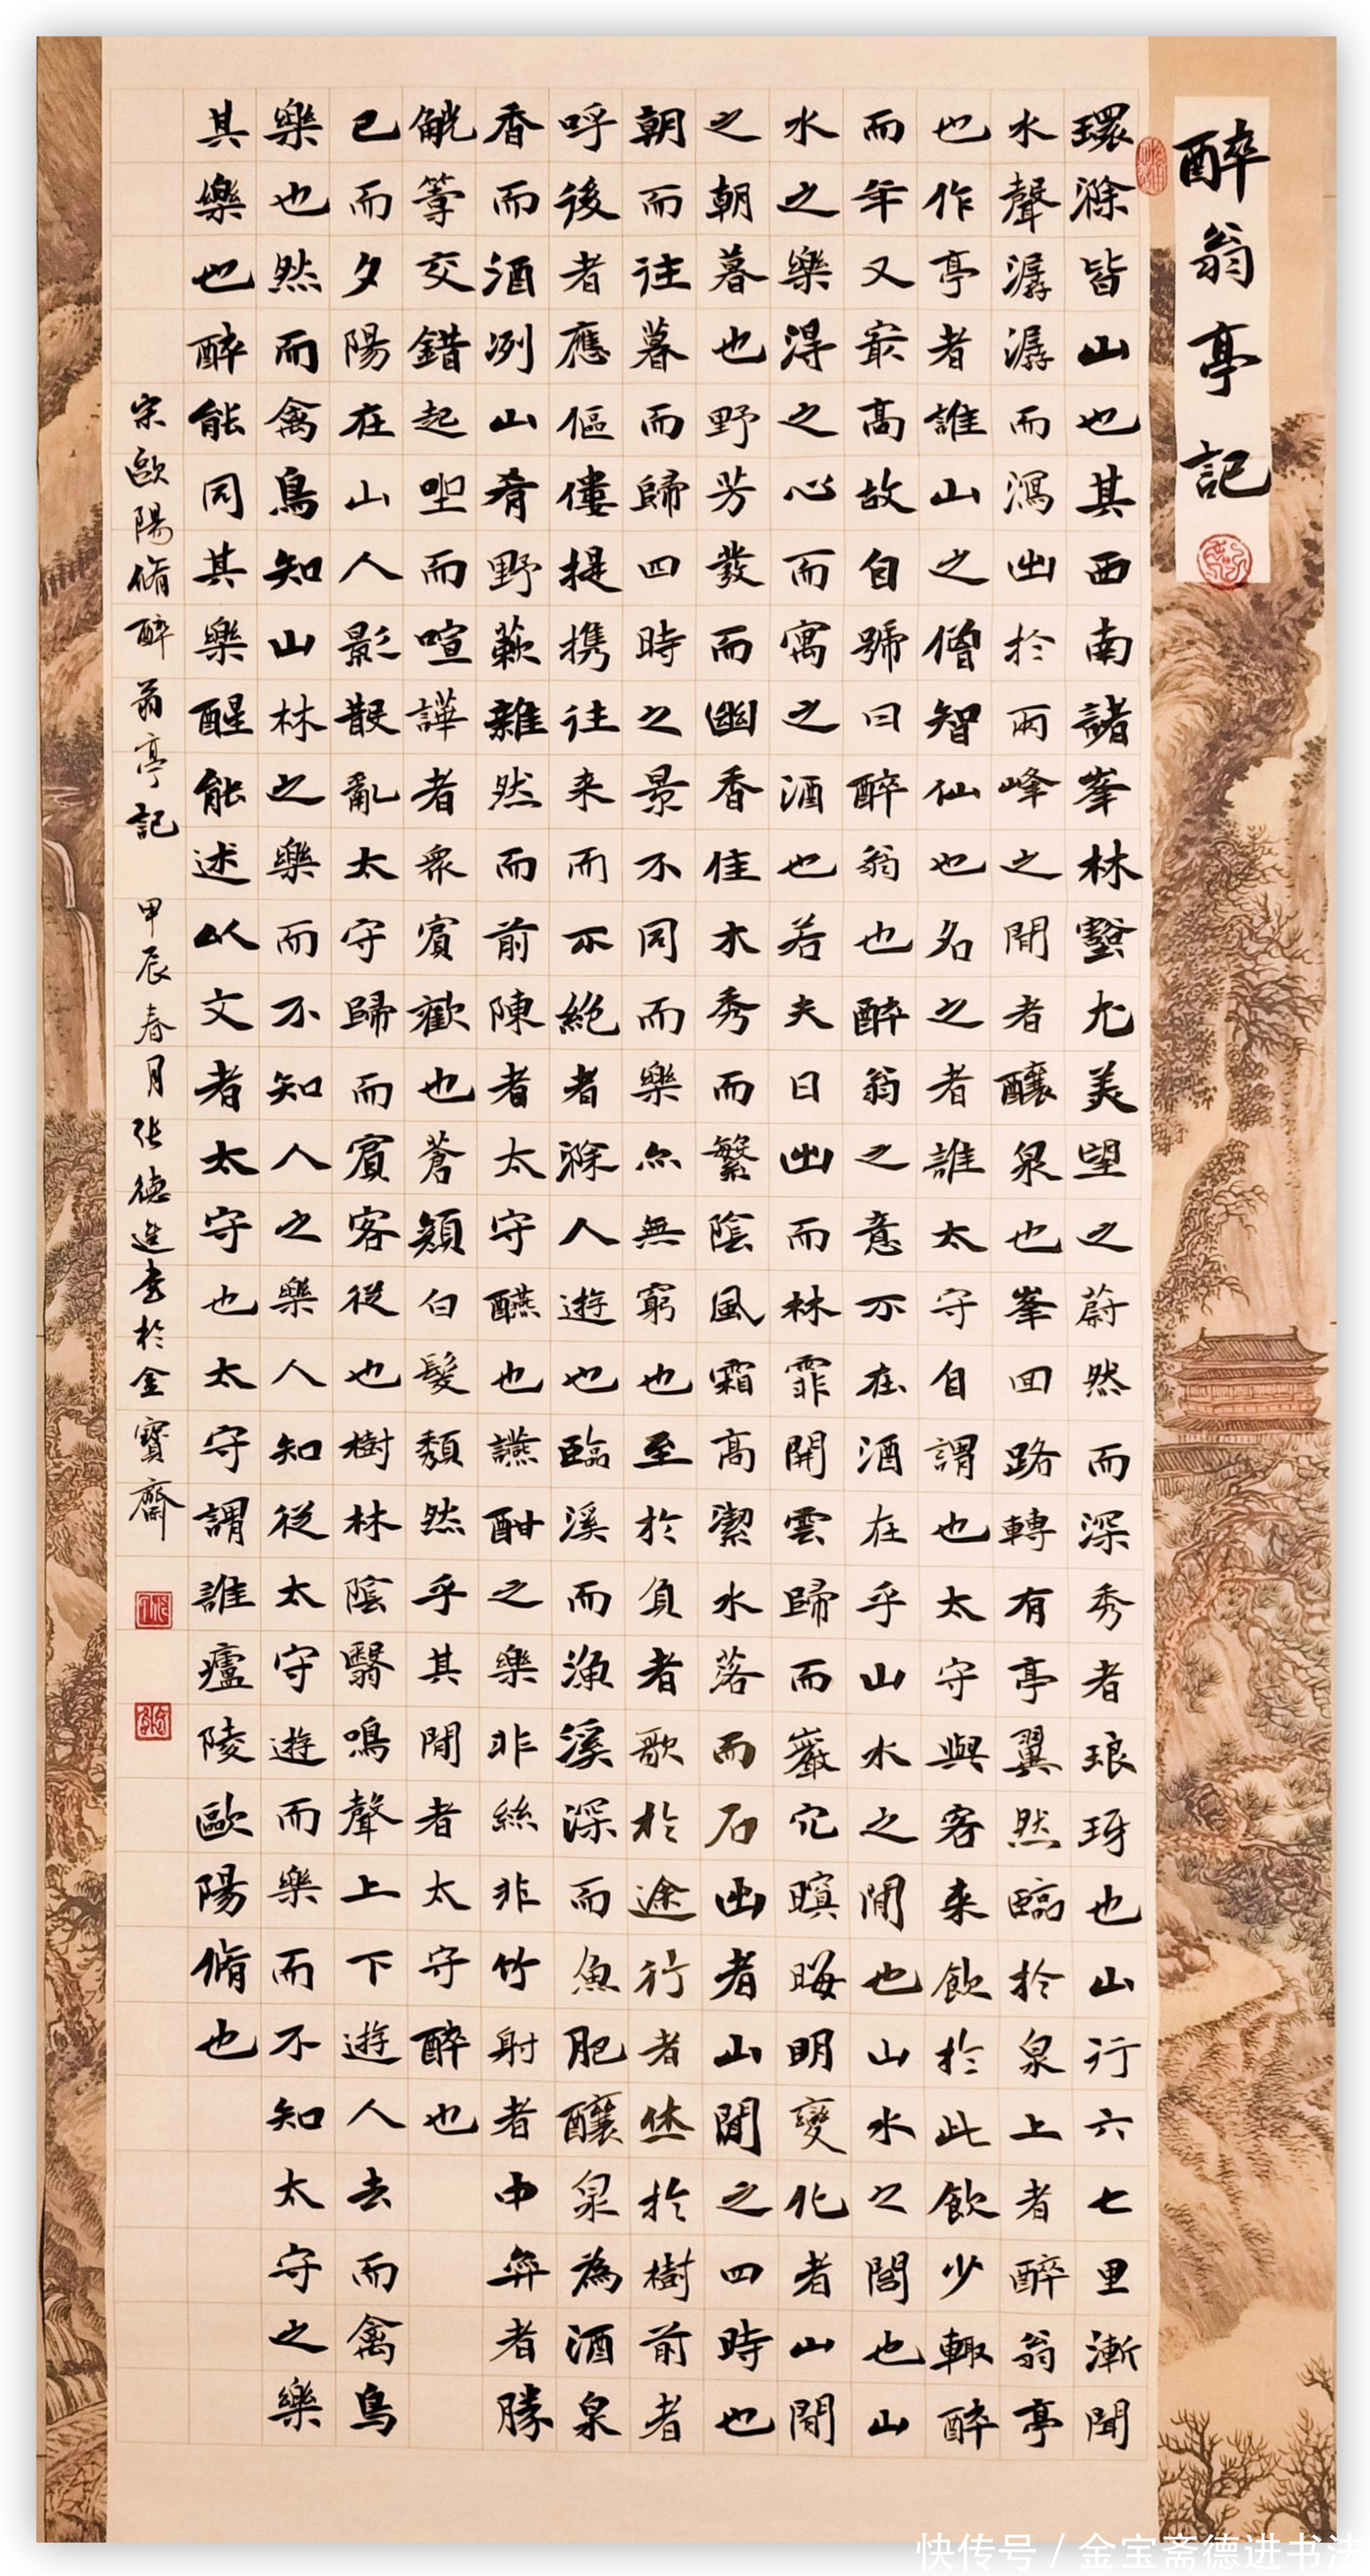 醉翁亭記
環滁皆山也其西南諸峯林壑尤美望之蔚然而深秀者琅琊也山行六七里漸聞
水聲潺潺而瀉出於兩峰之間者釀泉也峯回路轉有亭翼然臨於泉上者醉翁亭
也作亭者誰山之僧智仙也名之者誰太守自謂也太守與客来飲於此飲少輒醉
而年又最高故自號曰醉翁也醉翁之意不在酒在乎山水之間也山水之閭也山
水之樂得之心而寓之酒也若夫日出而林霏開雲歸而巖穴暝晦明變化者山間
之朝暮也野芳發而幽香佳木秀而繁陰風霜高潔水落而石出者山間之四時也
朝而往暮而歸四時之景不同而樂亦無窮也至於負者歌於途行者休於樹前者
呼後者應傴僂提携往来而不絕者滁人遊也臨溪而漁溪深而魚肥釀泉為酒泉
香而酒冽山肴野蔌雜然而前陳者太守醼也讌酣之樂非絲非竹射者中弈者勝
觥籌交錯起坐而喧譁者眾賓歡也蒼顏白髮頹然乎其間者太守醉也
已而夕陽在山人影散亂太守歸而賓客從也樹林陰翳鳴聲上下遊人去而禽鳥
樂也然而禽鳥知山林之樂而不知人之樂人知從太守遊而樂而不知太守之樂
其樂也醉能同其樂醒能述以文者太守也太守謂誰廬陵歐陽脩也
宋歐陽脩醉翁亭記 甲辰春月張德進書於金寶齋
快传号 / 金宝斋德进书法